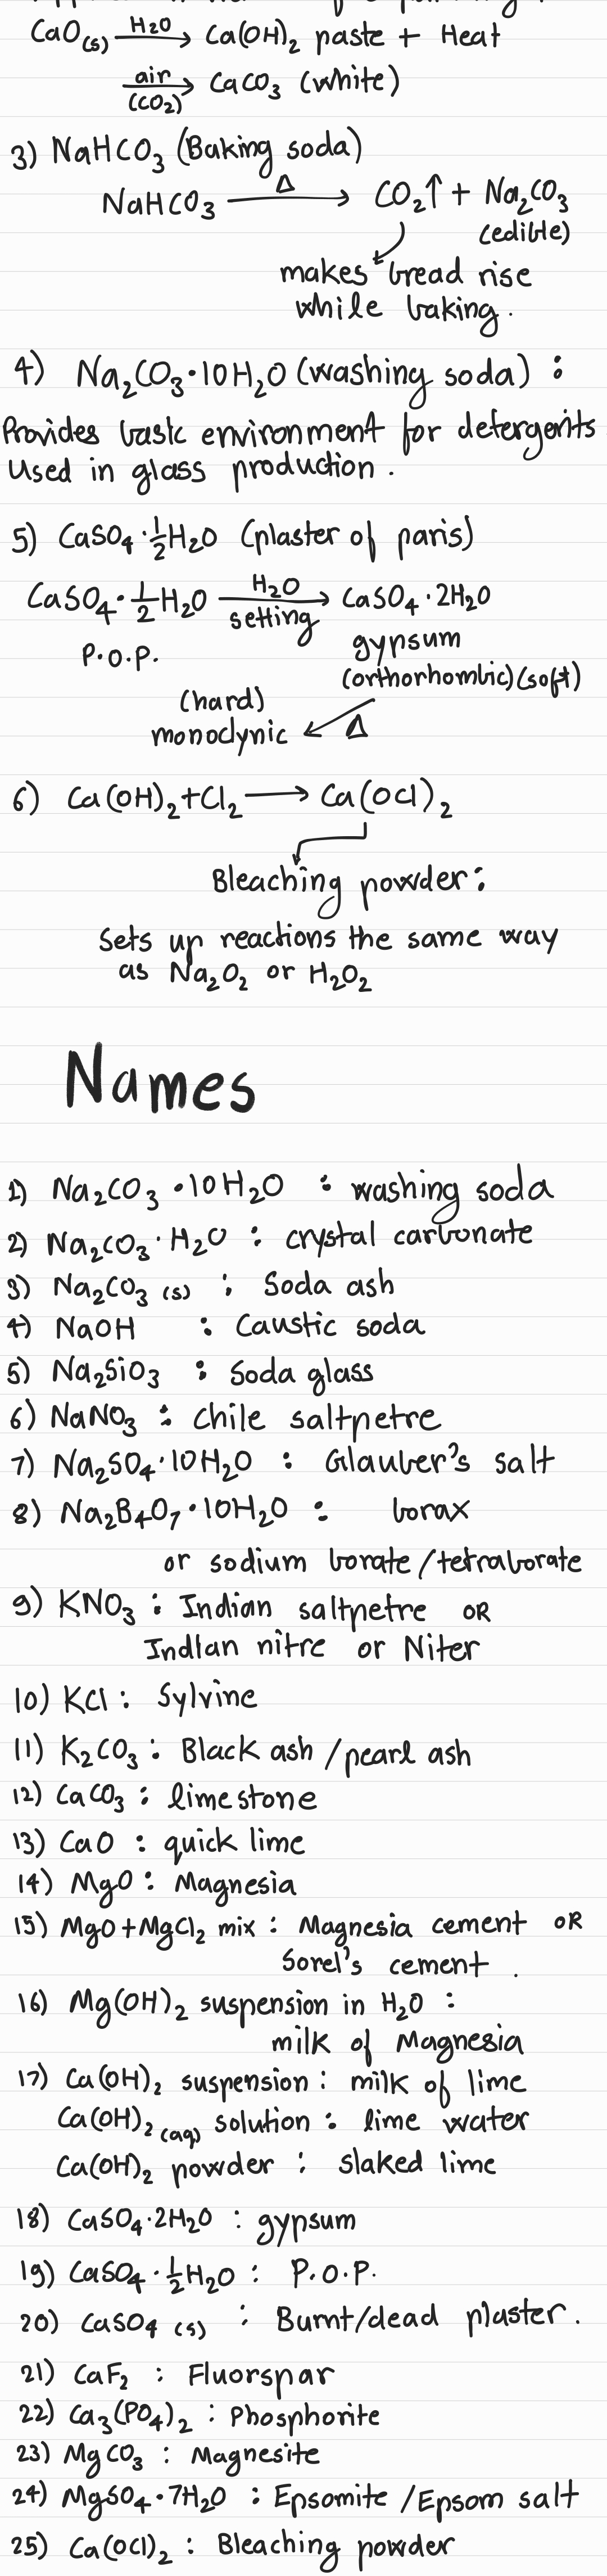 CaO(s) —H₂O→ Ca(OH)₂ paste + Heat
—air (CO₂)→ CaCO₃ (white)
3) NaHCO₃ (Baking soda)
NaHCO₃ —Δ→ CO₂↑ + Na₂CO₃
(edible)
makes bread rise
while baking.
4) Na₂CO₃·10H₂O (washing soda) :
Provides basic environment for detergents
Used in glass production.
5) CaSO₄·½H₂O (plaster of paris)
CaSO₄·½H₂O —H₂O setting→ CaSO₄·2H₂O
P.O.P. gypsum
(orthorhombic)(soft)
(hard)
monoclynic ← Δ
6) Ca(OH)₂+Cl₂ → Ca(OCl)₂
Bleaching powder:
Sets up reactions the same way
as Na₂O₂ or H₂O₂
Names
1) Na₂CO₃·10H₂O : washing soda
2) Na₂CO₃·H₂O : crystal carbonate
3) Na₂CO₃ (s) : Soda ash
4) NaOH : Caustic soda
5) Na₂SiO₃ : Soda glass
6) NaNO₃ : Chile saltpetre
7) Na₂SO₄·10H₂O : Glauber's salt
8) Na₂B₄O₇·10H₂O : borax
or sodium borate/tetraborate
9) KNO₃ : Indian saltpetre OR
Indian nitre or Niter
10) KCl : Sylvine
11) K₂CO₃ : Black ash/pearl ash
12) CaCO₃ : limestone
13) CaO : quick lime
14) MgO : Magnesia
15) MgO+MgCl₂ mix : Magnesia cement OR
Sorel's cement.
16) Mg(OH)₂ suspension in H₂O :
milk of Magnesia
17) Ca(OH)₂ suspension : milk of lime
Ca(OH)₂(aq) solution : lime water
Ca(OH)₂ powder : slaked lime
18) CaSO₄·2H₂O : gypsum
19) CaSO₄·½H₂O : P.O.P.
20) CaSO₄ (s) : Burnt/dead plaster.
21) CaF₂ : Fluorspar
22) Ca₃(PO₄)₂ : Phosphorite
23) MgCO₃ : Magnesite
24) MgSO₄·7H₂O : Epsomite/Epsom salt
25) Ca(OCl)₂ : Bleaching powder